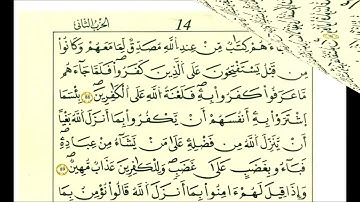 الحزب الثاني 14
جَآءَهُمْ كِتَٰبٌ مِّنْ عِندِ اِ۬للَّهِ مُصَدِّقٌ لِّمَا مَعَهُمْ وَكَانُواْ
مِن قَبْلُ يَسْتَفْتِحُونَ عَلَى اَ۬لذِينَ كَفَرُواْ فَلَمَّا جَآءَهُم
مَّا عَرَفُواْ كَفَرُواْ بِهِۦ فَلَعْنَةُ اُ۬للَّهِ عَلَى اَ۬لْكَٰفِرِينَ بِيسَمَا
اَ۪شْتَرَوْاْ بِهِۦٓ أَنفُسَهُمُۥٓ أَنْ يَّكْفُرُواْ بِمَآ أَنزَلَ اَ۬للَّهُ بَغْياً
اَنْ يُّنَزِّلَ اَ۬للَّهُ مِن فَضْلِهِۦ عَلَىٰ مَنْ يَّشَآءُ مِنْ عِبَادِهِۦ
فَبَآءُو بِغَضَبٍ عَلَىٰ غَضَبٍ وَلِلْكَٰفِرِينَ عَذَابٌ مُّهِينٌ
وَإِذَا قِيلَ لَهُمُۥٓ ءَامِنُواْ بِمَآ أَنزَلَ اَ۬للَّهُ قَالُواْ نُومِنُ بِمَآ